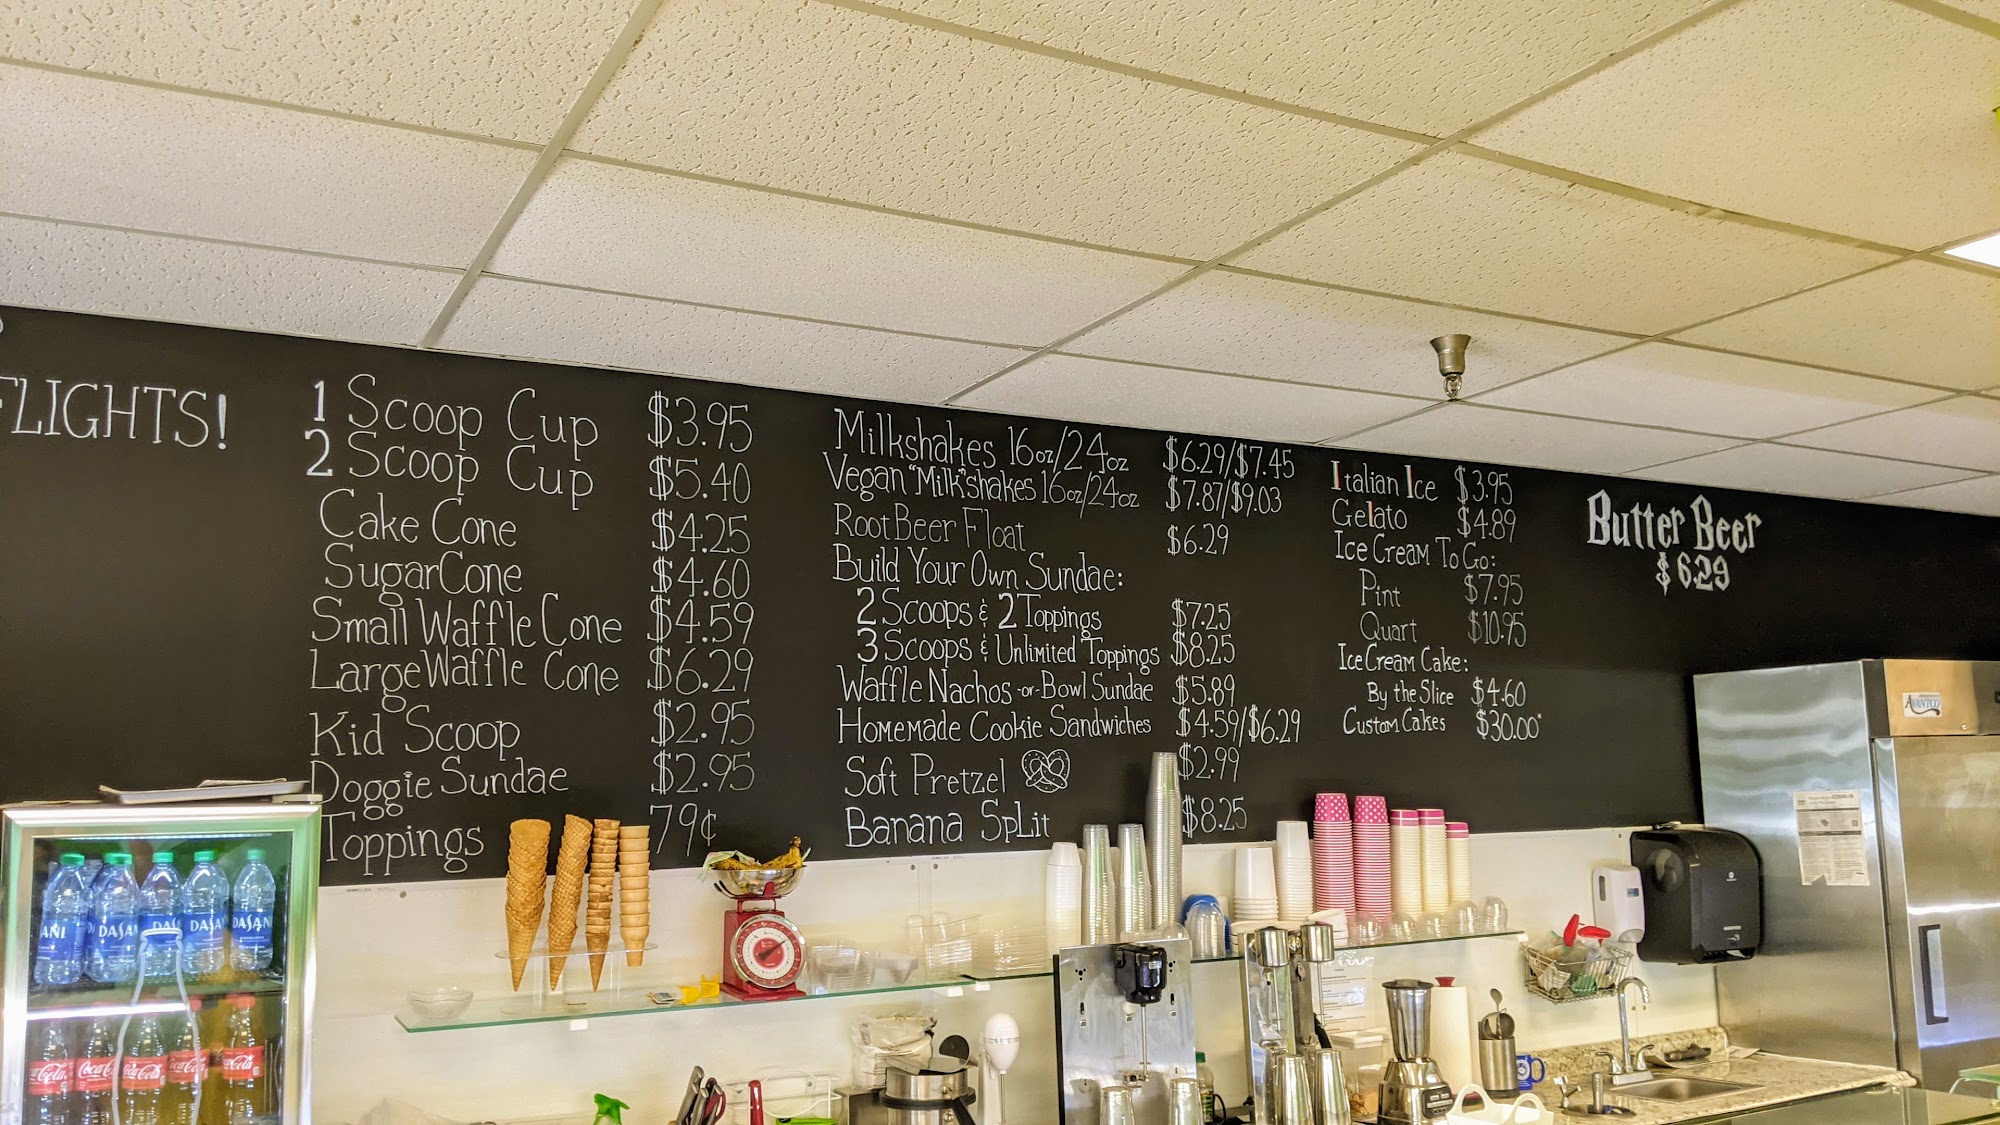 FLIGHTS!
1 Scoop Cup $3.95
2 Scoop Cup $5.40
Cake Cone $4.25
Sugar Cone $4.60
Small Waffle Cone $4.59
Large Waffle Cone $6.29
Kid Scoop $2.95
Doggie Sundae $2.95
Toppings 79¢
Milkshakes 16oz/24oz $6.29/$7.45
Vegan "Milk"shakes 16oz/24oz $7.87/$9.03
Root Beer Float $6.29
Build Your Own Sundae:
2 Scoops & 2 Toppings $7.25
3 Scoops & Unlimited Toppings $8.25
Waffle Nachos -or- Bowl Sundae $5.89
Homemade Cookie Sandwiches $4.59/$6.29
Soft Pretzel $2.99
Banana Split $8.25
Italian Ice $3.95
Gelato $4.89
Ice Cream To Go:
Pint $7.95
Quart $10.95
Ice Cream Cake:
By the Slice $4.60
Custom Cakes $30.00*
Butter Beer
$6.29
AVANTCO
DASANI
Coca-Cola